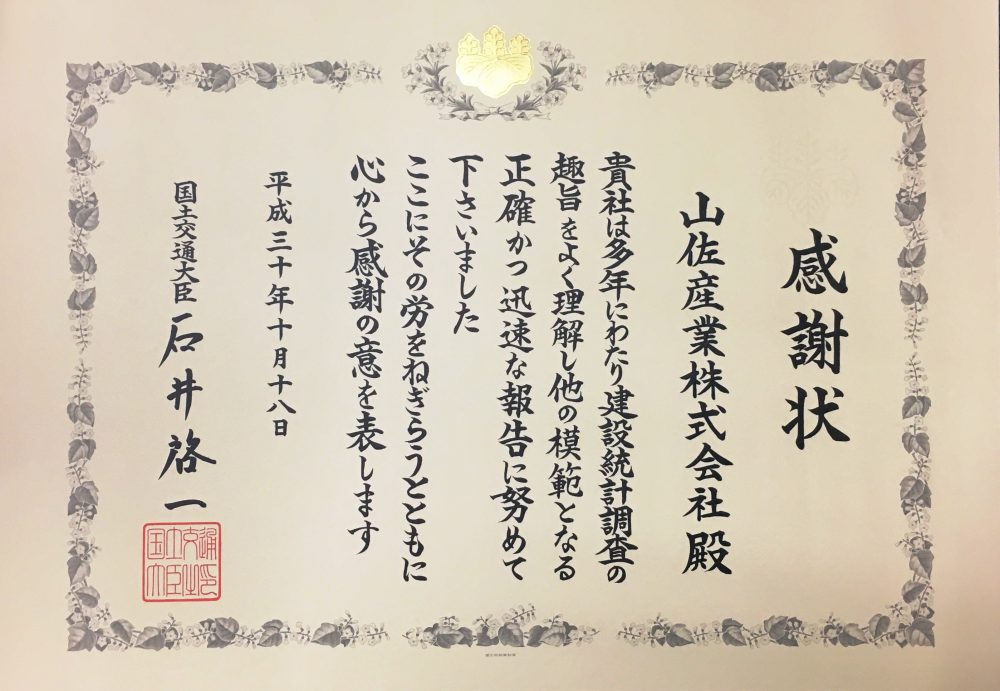 感謝状
山佐産業株式会社殿
貴社は多年にわたり建設統計調査の
趣旨をよく理解し他の模範となる
正確かつ迅速な報告に努めて
下さいました
ここにその労をねぎらうとともに
心から感謝の意を表します
平成三十年十月十八日
国土交通大臣 石井啓一
国土交通
大臣之印